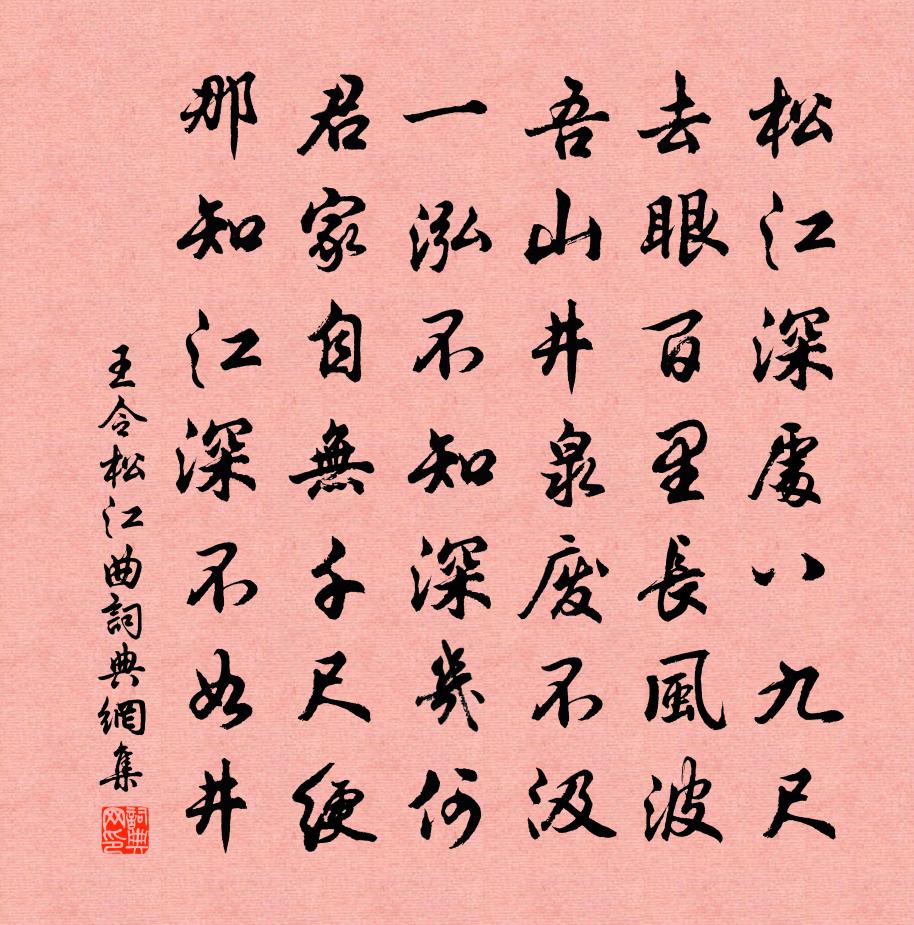 松江深處八九尺
去眼百里長風波
吾山井泉廢不汲
一泓不知深幾何
君家自無千尺綆
那知江深不如井
王令松江曲詞典網集
詞典網印